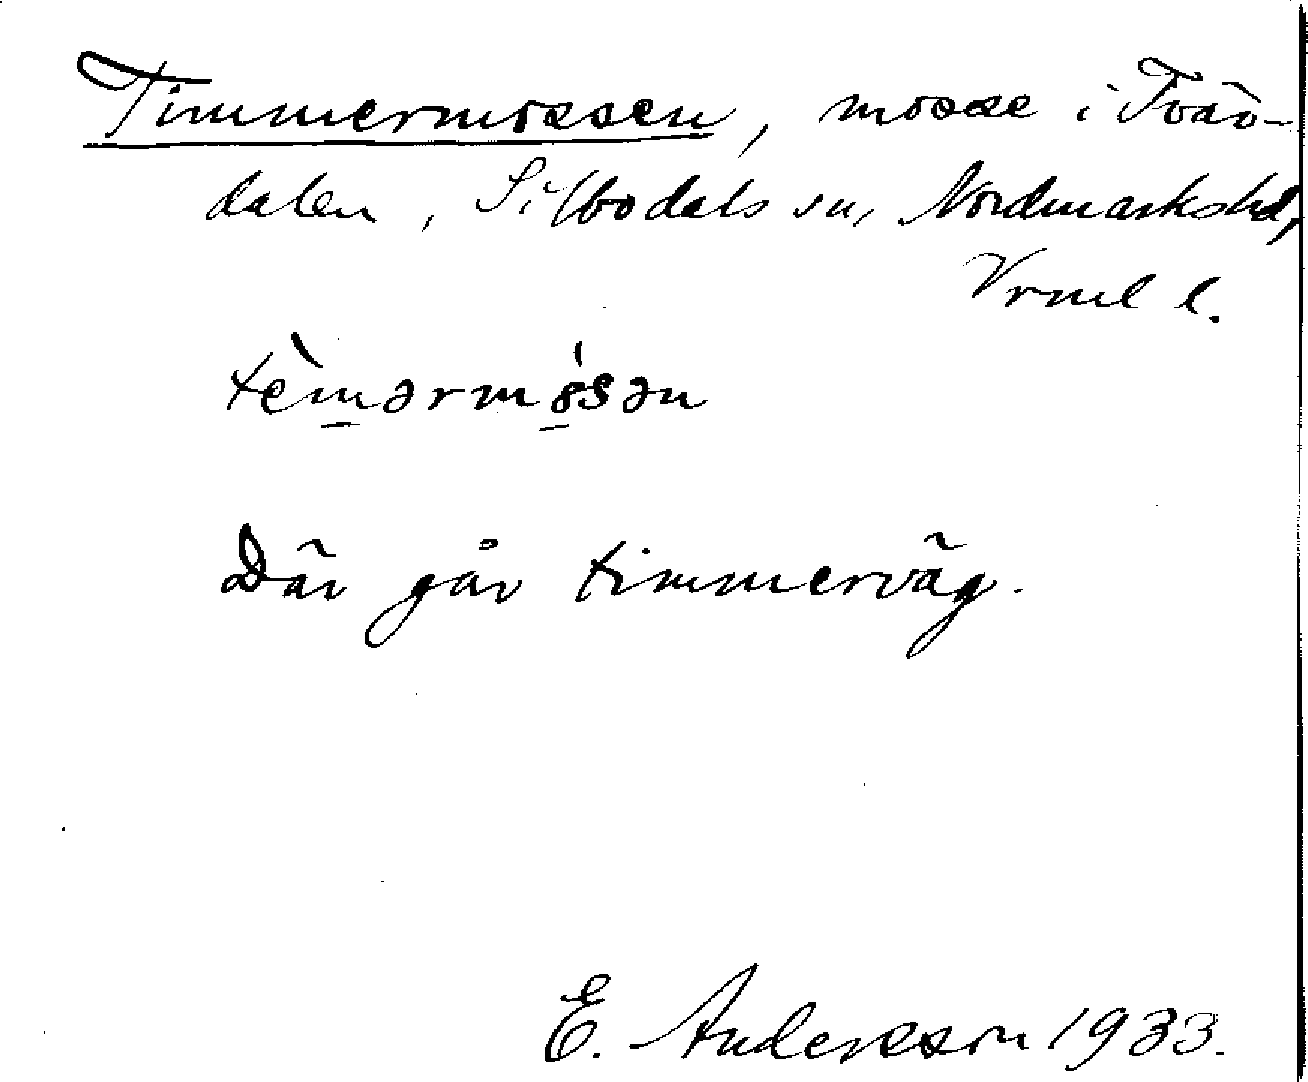 Timmermossen, mosse i Tvär-
dalen, Silbodals sn, Nordmarkshd,
Vrml l.
tèmərmósən
Där går timmerväg.
E. Andersson 1933.